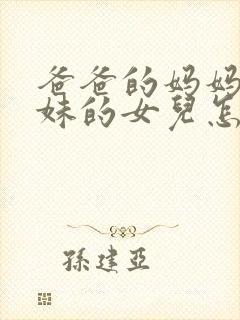 爸爸的妈妈
妹的女兒怎
孫建亞